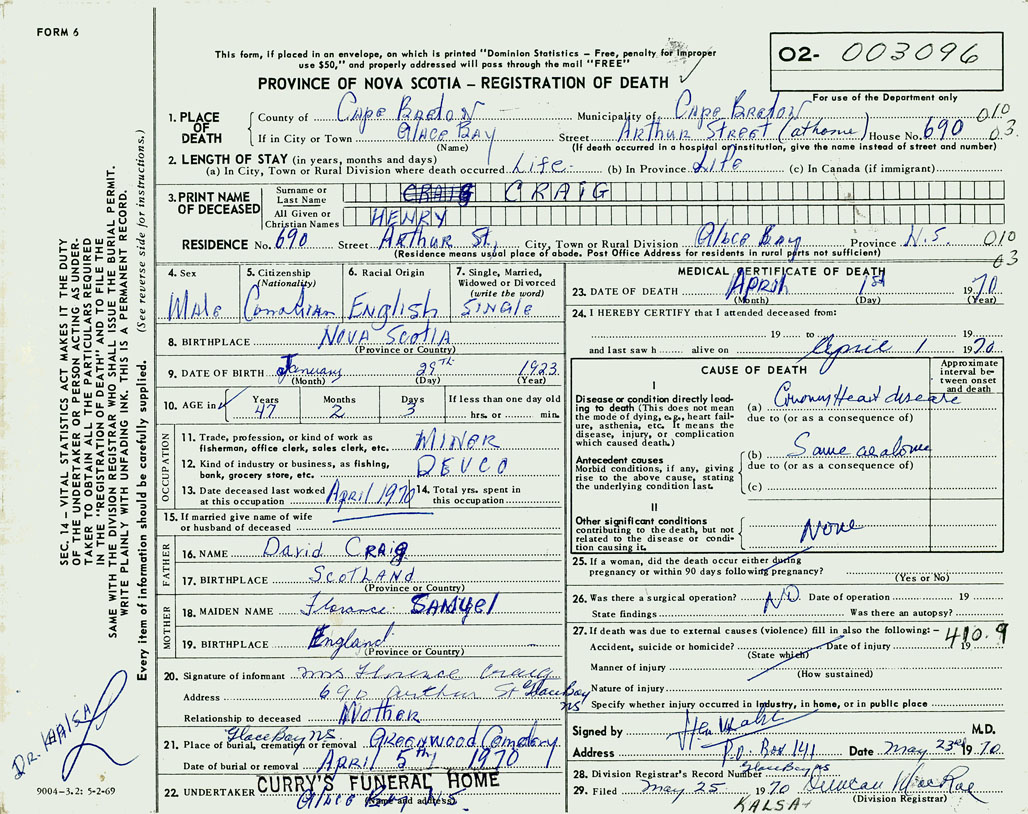 FORM 6
This form, if placed in an envelope, on which is printed "Dominion Statistics – Free, penalty for improper
use $50," and properly addressed will pass through the mail "FREE"
02- 003096
PROVINCE OF NOVA SCOTIA – REGISTRATION OF DEATH
For use of the Department only
1. PLACE OF DEATH
County of Cape Breton Municipality of Cape Breton 010
If in City or Town Glace Bay Street Arthur Street (at home) House No. 690 03
(Name) (If death occurred in a hospital or institution, give the name instead of street and number)
2. LENGTH OF STAY (in years, months and days)
(a) In City, Town or Rural Division where death occurred Life (b) In Province Life (c) In Canada (if immigrant)
3. PRINT NAME OF DECEASED
Surname or Last Name CRAIG CRAIG
All Given or Christian Names HENRY
RESIDENCE No. 690 Street Arthur St. City, Town or Rural Division Glace Bay Province N.S. 010
(Residence means usual place of abode. Post Office Address for residents in rural parts not sufficient) 03
4. Sex Male
5. Citizenship (Nationality) Canadian
6. Racial Origin English
7. Single, Married, Widowed or Divorced (write the word) Single
8. BIRTHPLACE NOVA SCOTIA
(Province or Country)
9. DATE OF BIRTH January 29th 1923
(Month) (Day) (Year)
10. AGE in Years 47 Months 2 Days 3 If less than one day old hrs. or min.
OCCUPATION
11. Trade, profession, or kind of work as fisherman, office clerk, sales clerk, etc. MINER
12. Kind of industry or business, as fishing, bank, grocery store, etc. DEVCO
13. Date deceased last worked at this occupation April 1970
14. Total yrs. spent in this occupation
15. If married give name of wife or husband of deceased
FATHER
16. NAME David Craig
17. BIRTHPLACE SCOTLAND
(Province or Country)
MOTHER
18. MAIDEN NAME Florence SAMUEL
19. BIRTHPLACE England
(Province or Country)
20. Signature of informant Mrs Florence Craig
Address 690 Arthur St Glace Bay NS
Relationship to deceased Mother
21. Place of burial, cremation or removal Glace Bay NS Greenwood Cemetery
Date of burial or removal APRIL 5th 1970
22. UNDERTAKER CURRY'S FUNERAL HOME
Glace Bay N.S.
(Name and address)
MEDICAL CERTIFICATE OF DEATH
23. DATE OF DEATH April 1st 1970
(Month) (Day) (Year)
24. I HEREBY CERTIFY that I attended deceased from:
19 to 19
and last saw h alive on April 1 1970
CAUSE OF DEATH
Approximate interval between onset and death
I
Disease or condition directly leading to death (This does not mean the mode of dying, e.g., heart failure, asthenia, etc. It means the disease, injury, or complication which caused death.)
(a) Coronary Heart disease
due to (or as a consequence of)
Antecedent causes
Morbid conditions, if any, giving rise to the above cause, stating the underlying condition last.
(b) Same as above
due to (or as a consequence of)
(c)
II
Other significant conditions
contributing to the death, but not related to the disease or condition causing it.
None
25. If a woman, did the death occur either during
pregnancy or within 90 days following pregnancy?
(Yes or No)
26. Was there a surgical operation? NO Date of operation 19
State findings Was there an autopsy?
27. If death was due to external causes (violence) fill in also the following:– 410.9
Accident, suicide or homicide? Date of injury 19
(State which)
Manner of injury
(How sustained)
Nature of injury
Specify whether injury occurred in industry, in home, or in public place
Signed by M.D.
Address P.O. Box 141 Date May 23rd 1970
Glace Bay NS
28. Division Registrar's Record Number
29. Filed May 25 1970 Duncan MacRae
(Division Registrar)
KALSA
SEC. 14 – VITAL STATISTICS ACT MAKES IT THE DUTY
OF THE UNDERTAKER OR PERSON ACTING AS UNDER-
TAKER TO OBTAIN ALL THE PARTICULARS REQUIRED
IN THE "REGISTRATION OF DEATH" AND TO FILE THE
SAME WITH THE DIVISION REGISTRAR WHO SHALL ISSUE THE BURIAL PERMIT.
WRITE PLAINLY WITH UNFADING INK. THIS IS A PERMANENT RECORD.
Every item of information should be carefully supplied. (See reverse side for instructions.)
DR. KALSA
9004–3.2: 5-2-69